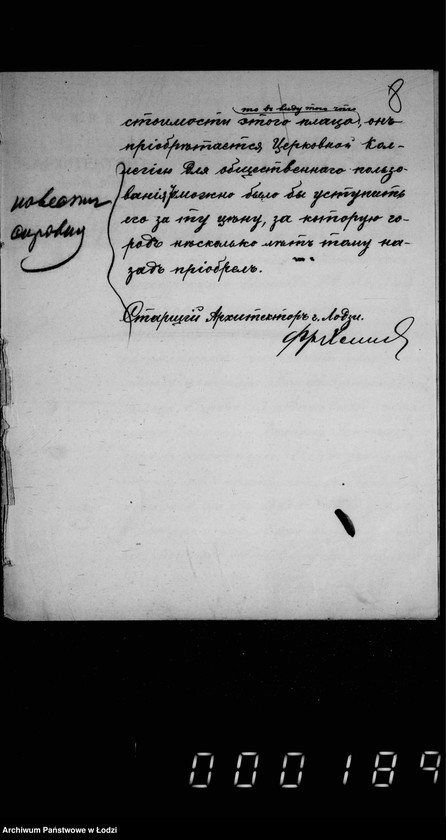 8
то въ виду того что
стоимости этого плаца, онъ
пріобрѣтается Церковной Кол-
легіею для общественнаго пользо-
ванія можно было бы уступать
его за ту цѣну, за которую го-
родъ нѣсколько лѣтъ тому на-
задъ пріобрел.
Старшій Архитекторъ г. Лодзи.
000189
Archiwum Państwowe w Łodzi